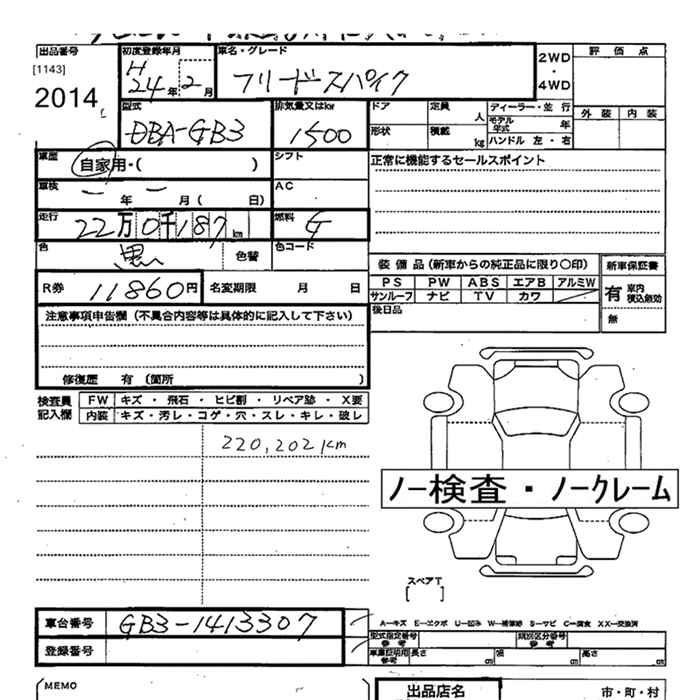 出品番号 初度登録年月 車名・グレード 2WD・4WD 評価点
[1143] H24年2月 フリードスパイク
2014 外装 内装
型式 排気量又はkw ドア 定員 人 ディーラー・並行
DBA-GB3 1500 モデル年式 年
形状 積載 kg ハンドル 左・右
車歴 自家用・( ) シフト 正常に機能するセールスポイント
車検 年 月 ( 日) AC
走行 22万0千187km 燃料 G
色 黒 色替 色コード
装備品(新車からの純正品に限り〇印) 新車保証書
R券 11860円 名変期限 月 日 PS PW ABS エアB アルミW 有 車内積込無効
サンルーフ ナビ TV カワ
注意事項申告欄(不具合内容等は具体的に記入して下さい) 後日品 無
修復歴 有 (箇所 )
検査員記入欄 FW キズ ・ 飛石 ・ ヒビ割 ・ リペア跡 ・ X要
内装 キズ・汚レ・コゲ・穴・スレ・キレ・破レ
220,202km
ノー検査・ノークレーム
スペアT
[ ]
車台番号 GB3-1413307 A-キズ E-エクボ U-凹み W-補修跡 S-サビ C-腐食 XX-交換済
登録番号 型式指定番号 参考 類別区分番号 参考
車庫証明用 参考 長さ cm 幅 cm 高さ cm
MEMO 出品店名 市・町・村